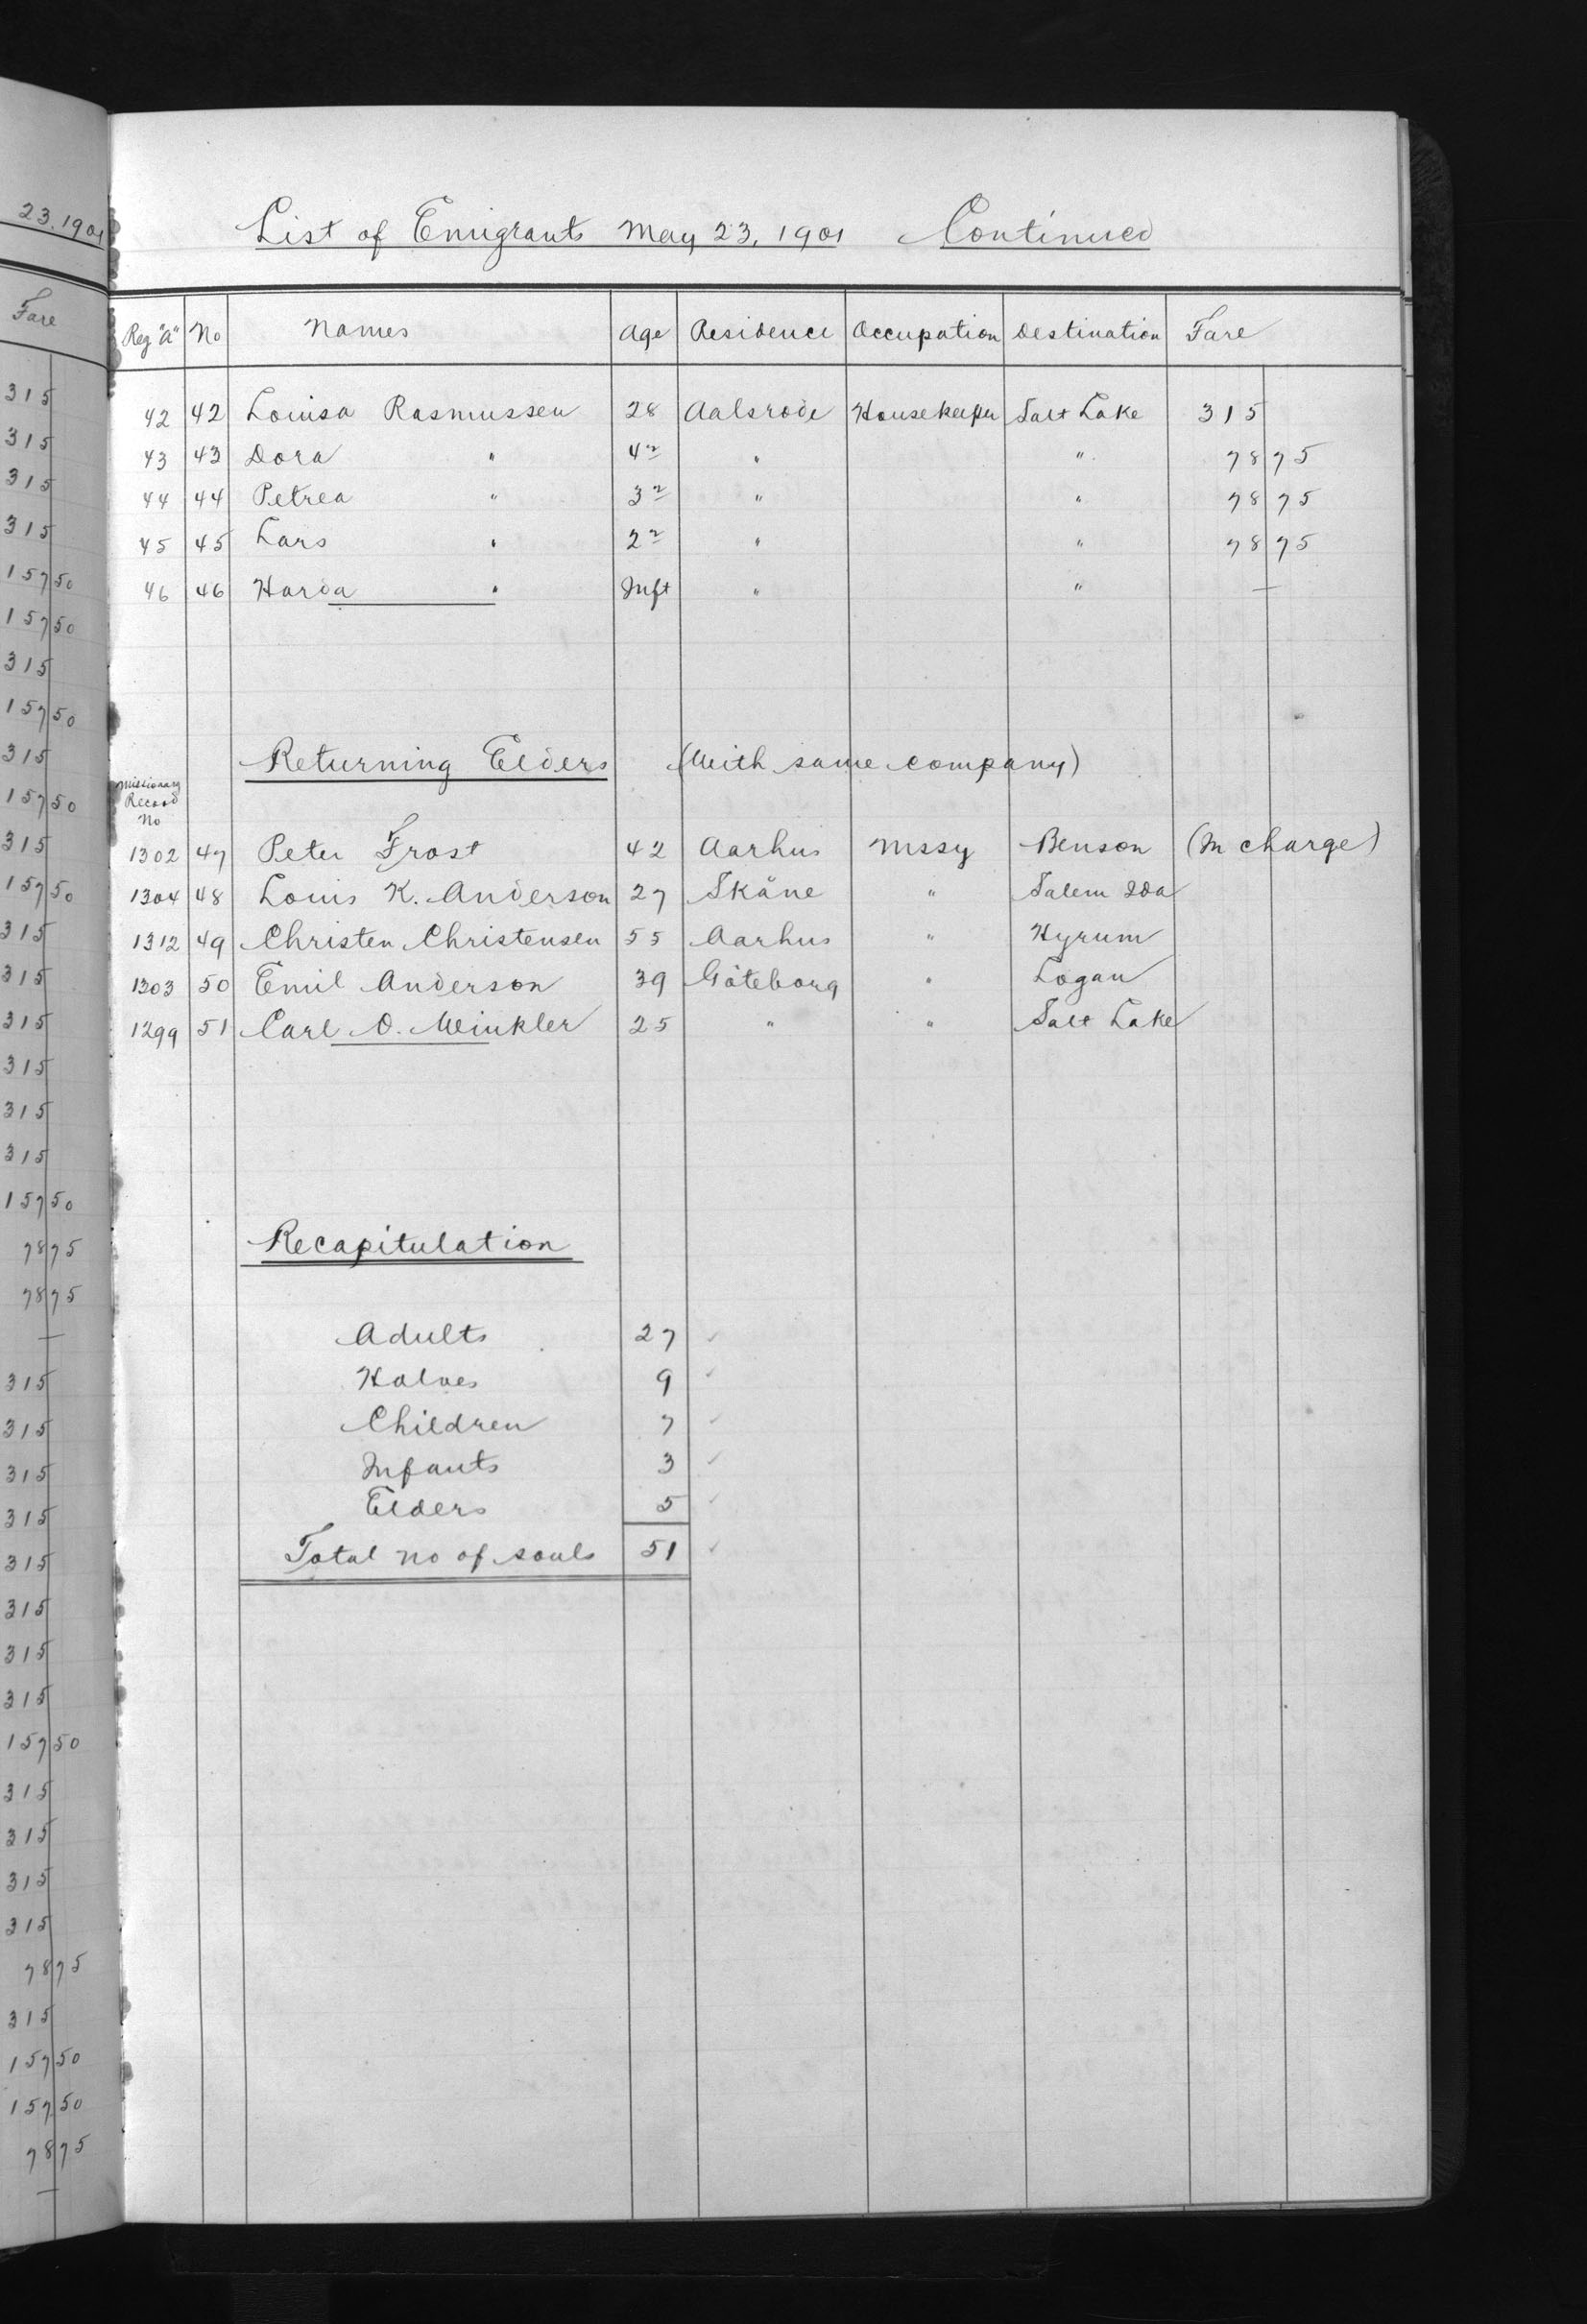 23. 1901
Fare
315
315
315
315
157 50
157 50
315
157 50
315
157 50
315
157 50
315
315
315
315
315
315
157 50
78 75
78 75
—
315
315
315
315
315
315
315
315
157 50
315
315
315
315
78 75
315
157 50
157 50
78 75
—
List of Emigrants May 23, 1901 Continued
Reg "A" No Names Age Residence Occupation Destination Fare
42 42 Louisa Rasmussen 28 Aalsrode Housekeeper Salt Lake 315
43 43 Dora " 4 " " 78 75
44 44 Petrea " 3 " " 78 75
45 45 Lars " 2 " " 78 75
46 46 Harda " Inft " " —
Returning Elders (With same company)
Missionary
Record
No
1302 47 Peter Frost 42 Aarhus Mssy Benson (In charge)
1304 48 Louis K. Anderson 27 Skåne " Salem Ida
1312 49 Christen Christensen 55 Aarhus " Hyrum
1303 50 Emil Anderson 39 Göteborg " Logan
1299 51 Carl O. Winkler 25 " " Salt Lake
Recapitulation
Adults 27 ✓
Halves 9 ✓
Children 7 ✓
Infants 3 ✓
Elders 5 ✓
Total no of souls 51 ✓